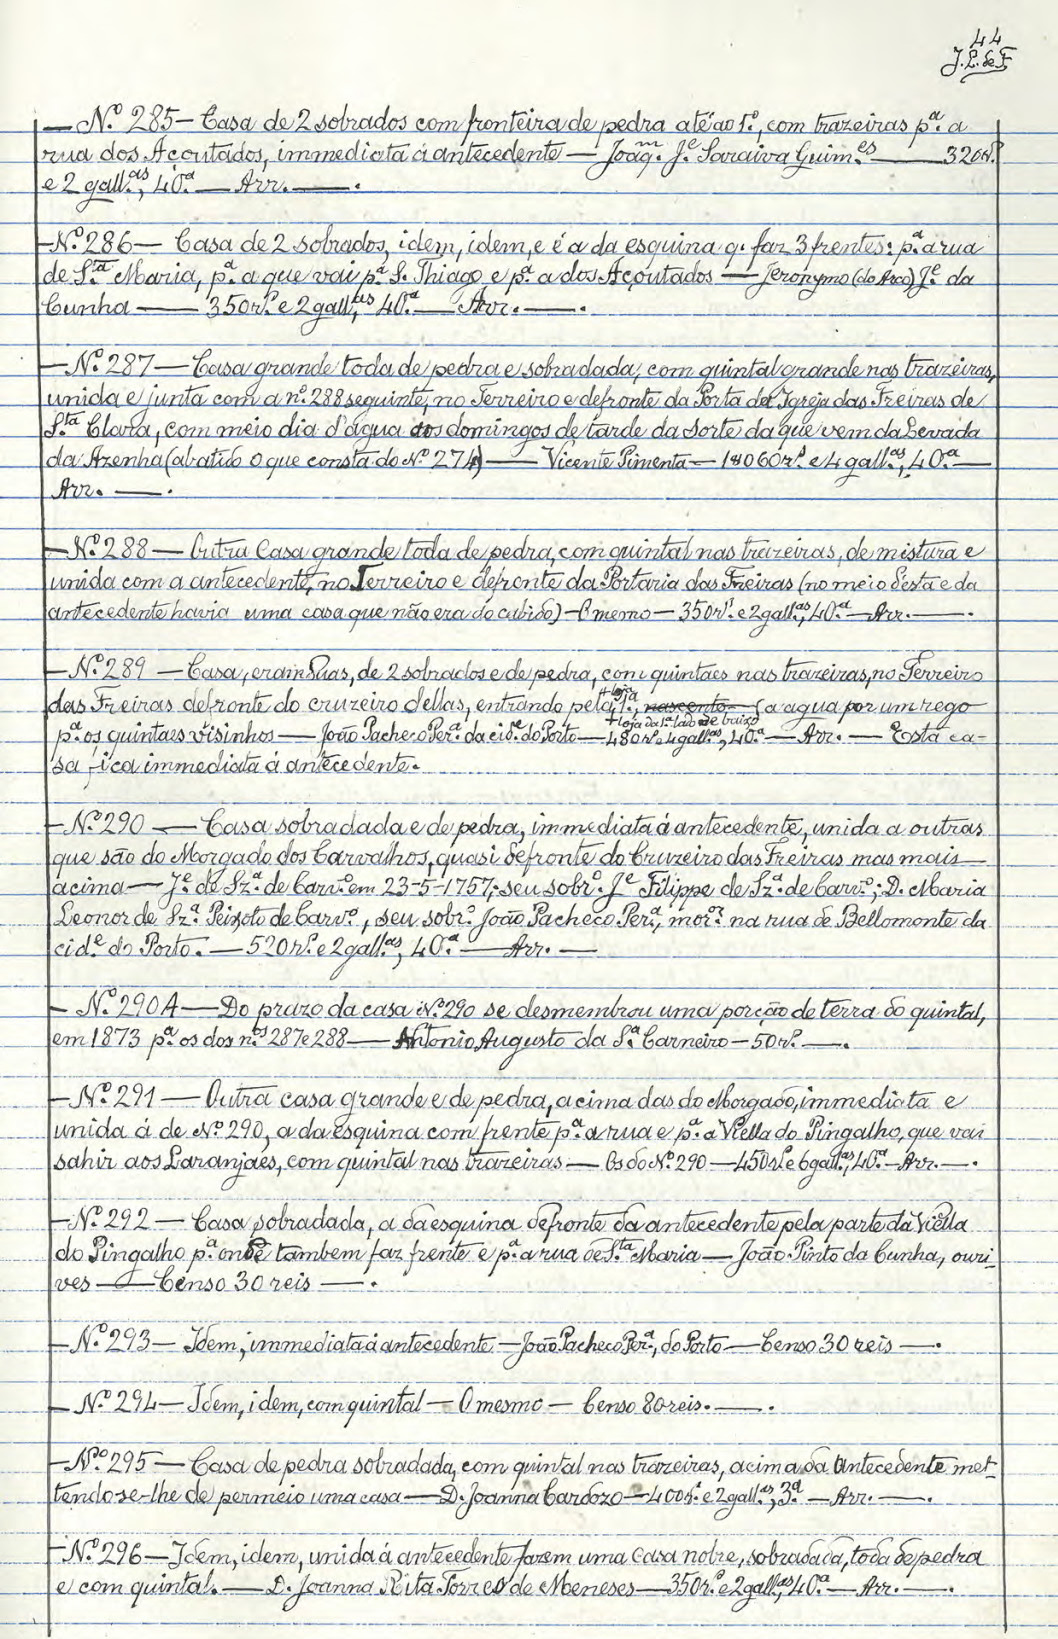 44
J. L. de F.
— N.º 285 — Casa de 2 sobrados com fronteira de pedra até ao 1.º, com trazeiras p.ª a
rua dos Açoutados, immediata á antecedente — Joaq.m J.e Saraiva Guim.es — 320 r.s
e 2 gall.as, 40.ª — Arr. — .
— N.º 286 — Casa de 2 sobrados, idem, idem, e é a da esquina q. faz 3 frentes: p.ª a rua
de S.ta Maria, p.ª a que vai p.ª S. Thiago, e p.ª a dos Açoutados — Jeronymo (do Arco) J.e da
Cunha — 350 r.s e 2 gall.as, 40.ª — Arr. — .
— N.º 287 — Casa grande toda de pedra e sobradada, com quintal grande nas trazeiras,
unida e junta com a n.º 288 seguinte, no Terreiro e defronte da Porta da Igreja das Freiras de
S.ta Clara, com meio dia d'agua dos domingos de tarde da sorte da que vem da Levada
da Azenha (abatido o que consta do N.º 274) — Vicente Pimenta — 1$060 r.s e 4 gall.as, 40.ª —
Arr. — .
— N.º 288 — Outra Casa grande toda de pedra, com quintal nas trazeiras, de mistura e
unida com a antecedente, no Terreiro e defronte da Portaria das Freiras (no meio desta e da
antecedente havia uma casa que não era do cabido) — O memo — 350 r.s e 2 gall.as, 40.ª — Arr. — .
— N.º 289 — Casa, eram duas, de 2 sobrados e de pedra, com quintaes nas trazeiras, no Terreiro
das Freiras defronte do cruzeiro dellas, entrando pela + loja 1.ª, nascente — (a agua por um rego
+ loja da 1.ª lado de baixo
p.ª os quintaes visinhos — João Pacheco Per.ª da cid.e do Porto — 480 r.s 4 gall.as, 40.ª — Arr. — Esta ca-
sa fica immediata á antecedente.
— N.º 290 — Casa sobradada e de pedra, immediata á antecedente, unida a outras
que são do Morgado dos Carvalhos, quasi defronte do Cruzeiro das Freiras mas mais
acima — J.e de Sz.ª de Carv.º em 23-5-1757; seu sobr.º J.e Filippe de Sz.ª de Carv.º; D. Maria
Leonor de Sz.ª Peixoto de Carv.º, seu sobr.º João Pacheco Per.ª, mor.or na rua de Bellomonte da
cid.e do Porto. — 520 r.s e 2 gall.as, 40.ª — Arr. —
— N.º 290 A — Do prazo da casa N.º 290 se desmembrou uma porção de terra do quintal,
em 1873 p.ª os dos n.os 287 e 288 — Antonio Augusto da S.ª Carneiro — 50 r.s — .
— N.º 291 — Outra casa grande e de pedra, acima das do Morgado, immediata e
unida á de N.º 290, a da esquina com frente p.ª a rua e p.ª a Viella do Pingalho, que vai
sahir aos Laranjaes, com quintal nas trazeiras — Os do N.º 290 — 450 r.s e 6 gall.as, 40.ª — Arr. — .
— N.º 292 — Casa sobradada, a da esquina defronte da antecedente pela parte da Viella
do Pingalho p.ª onde tambem faz frente e p.ª a rua de S.ta Maria — João Pinto da Cunha, ouri-
ves — Censo 30 reis — .
— N.º 293 — Idem, immediata á antecedente — João Pacheco Per.ª, do Porto — Censo 30 reis — .
— N.º 294 — Idem, idem, com quintal — O mesmo — Censo 80 reis. — .
— N.º 295 — Casa de pedra sobradada, com quintal nas trazeiras, acima da antecedente met-
tendo-se-lhe de permeio uma casa — D. Joanna Cardozo — 400 r.s e 2 gall.as, 3.ª — Arr. — .
— N.º 296 — Idem, idem, unida á antecedente fazem uma casa nobre, sobradada, toda de pedra
e com quintal. — D. Joanna Rita Torres de Meneses — 350 r.s e 2 gall.as, 40.ª — Arr. — .